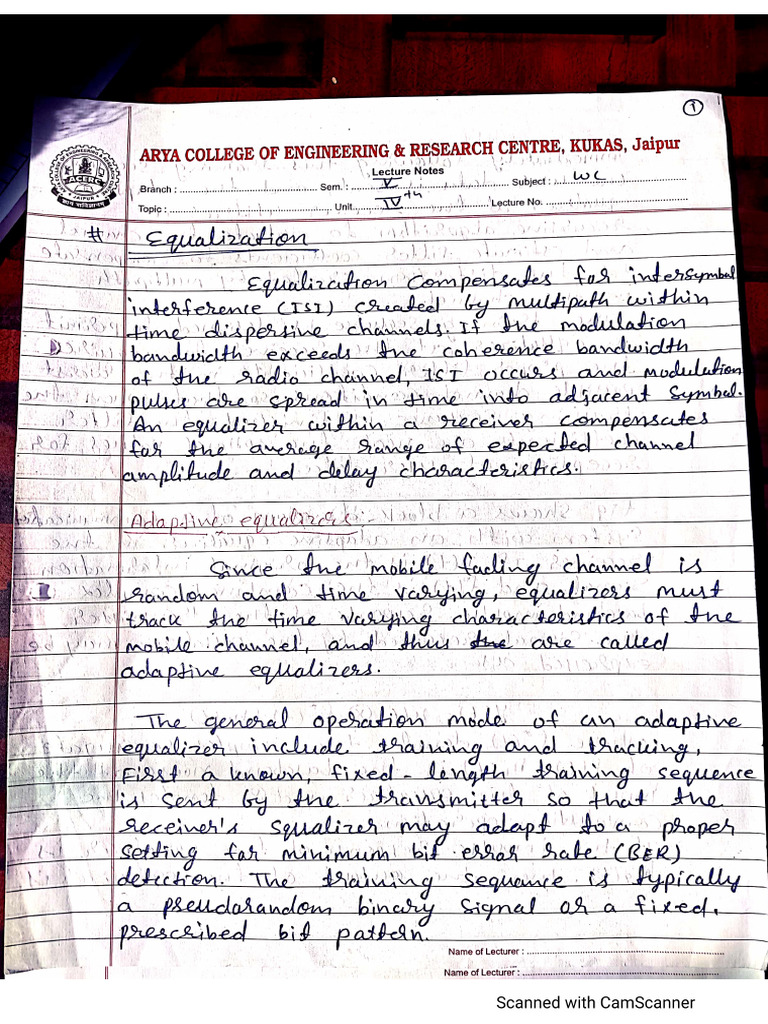 1
ARYA COLLEGE OF ENGINEERING & RESEARCH CENTRE, KUKAS, Jaipur
Lecture Notes
Branch : Sem. : V Subject : WC
Topic : Unit IVth Lecture No.
ACERC
JAIPUR
# Equalization
Equalization compensates for intersymbol
interference (ISI) created by multipath within
time dispersive channels. If the modulation
bandwidth exceeds the coherence bandwidth
of the radio channel, ISI occurs and modulation
pulses are spread in time into adjacent symbol.
An equalizer within a receiver compensates
for the average range of expected channel
amplitude and delay characteristics.
Adaptive equalizers :-
Since the mobile fading channel is
random and time varying, equalizers must
track the time varying characteristics of the
mobile channel, and thus are called
adaptive equalizers.
The general operation mode of an adaptive
equalizer include training and tracking,
First a known, fixed-length training sequence
is sent by the transmitter so that the
receiver's squalizer may adapt to a proper
setting for minimum bit error rate (BER)
detection. The training sequance is typically
a pseudarandom binary signal or a fixed,
prescribed bit pattern.
Name of Lecturer :
Name of Lecturer :
Scanned with CamScanner